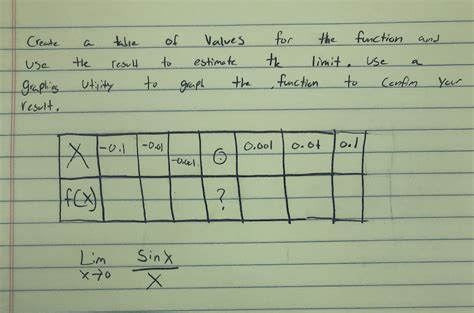 Create a table of values for the function and
use the result to estimate the limit. Use a
graphing utility to graph the function to confirm your
result.
X -0.1 -0.01 -0.001 0 0.001 0.01 0.1
f(x) ?
Lim Sinx
x→0 X